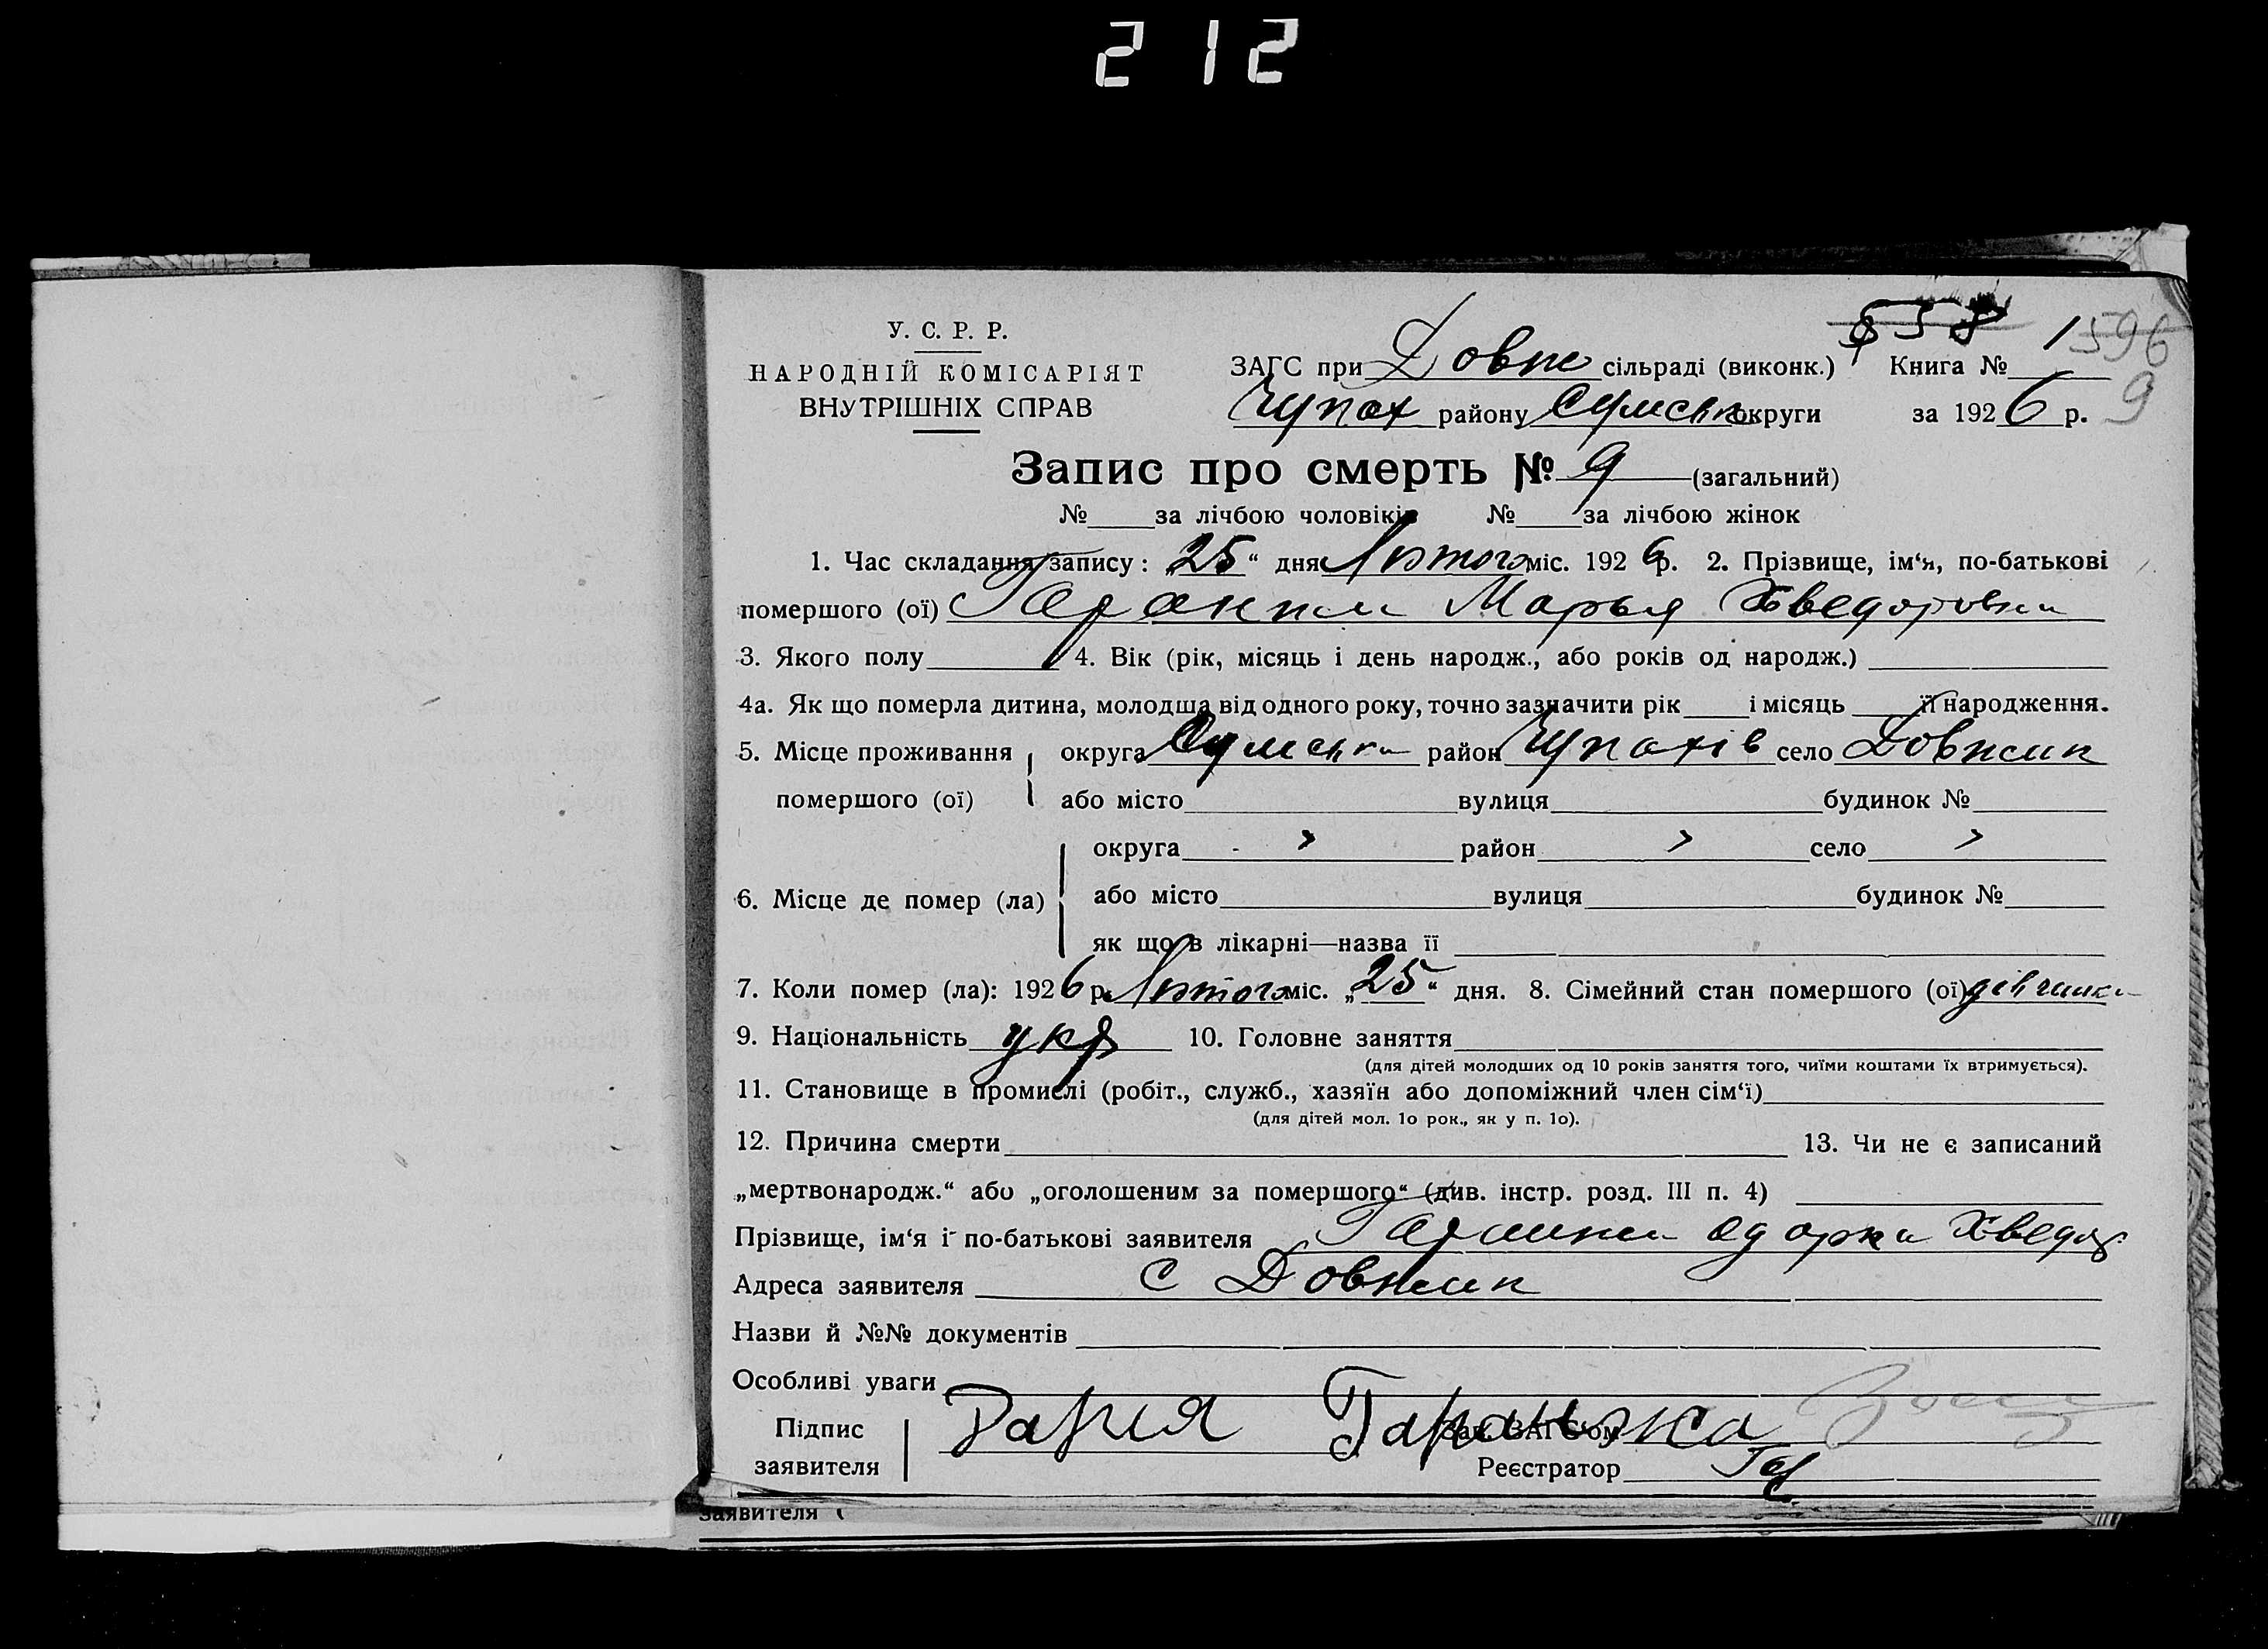 212
У. С. Р. Р.
НАРОДНІЙ КОМІСАРІЯТ
ВНУТРІШНІХ СПРАВ
558 1 596
ЗАГС при Довж сільраді (виконк.) Книга №
Чупах району Сумськ округи за 1926 р. 9
Запис про смерть № 9 (загальний)
№ за лічбою чоловіків № за лічбою жінок
1. Час складання запису: „25“ дня Лютого міс. 1926 р. 2. Прізвище, ім‘я, по-батькові
помершого (ої) Гаранжа Марья Хведоровна
3. Якого полу 4. Вік (рік, місяць і день народж., або років од народж.)
4а. Як що померла дитина, молодша від одного року, точно зазначити рік і місяць її народження.
5. Місце проживання округа Сумська район Чупахів село Довжик
помершого (ої) або місто вулиця будинок №
округа » район » село »
6. Місце де помер (ла) або місто вулиця будинок №
як що в лікарні—назва її
7. Коли помер (ла): 1926 р. Лютого міс. „25“ дня. 8. Сімейний стан помершого (ої) дівчинка
9. Національність укр 10. Головне заняття
(для дітей молодших од 10 років заняття того, чиїми коштами їх втримується).
11. Становище в промислі (робіт., служб., хазяїн або допоміжний член сім‘ї)
(для дітей мол. 1о рок., як у п. 1о).
12. Причина смерти 13. Чи не є записаний
„мертвонародж.“ або „оголошеним за помершого“ (див. інстр. розд. III п. 4)
Прізвище, ім‘я і по-батькові заявителя Гаранжа Хведор
Адреса заявителя с Довжик
Назви й №№ документів
Особливі уваги
Підпис Дарія Гаранжа Зав. ЗАГС‘ом
заявителя Реєстратор
заявителя